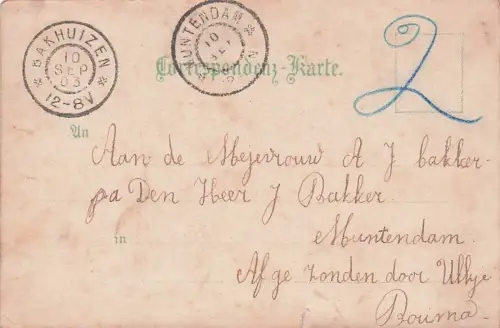 * BAKHUIZEN *
10
SEP
03
12-8V
MUNTENDAM *
10
Correspondenz-Karte.
2
An
Aan de Mejevrouw A J bakker
pa Den Heer J Bakker.
in
Muntendam.
Af ge zonden door Ulkje
Bouma